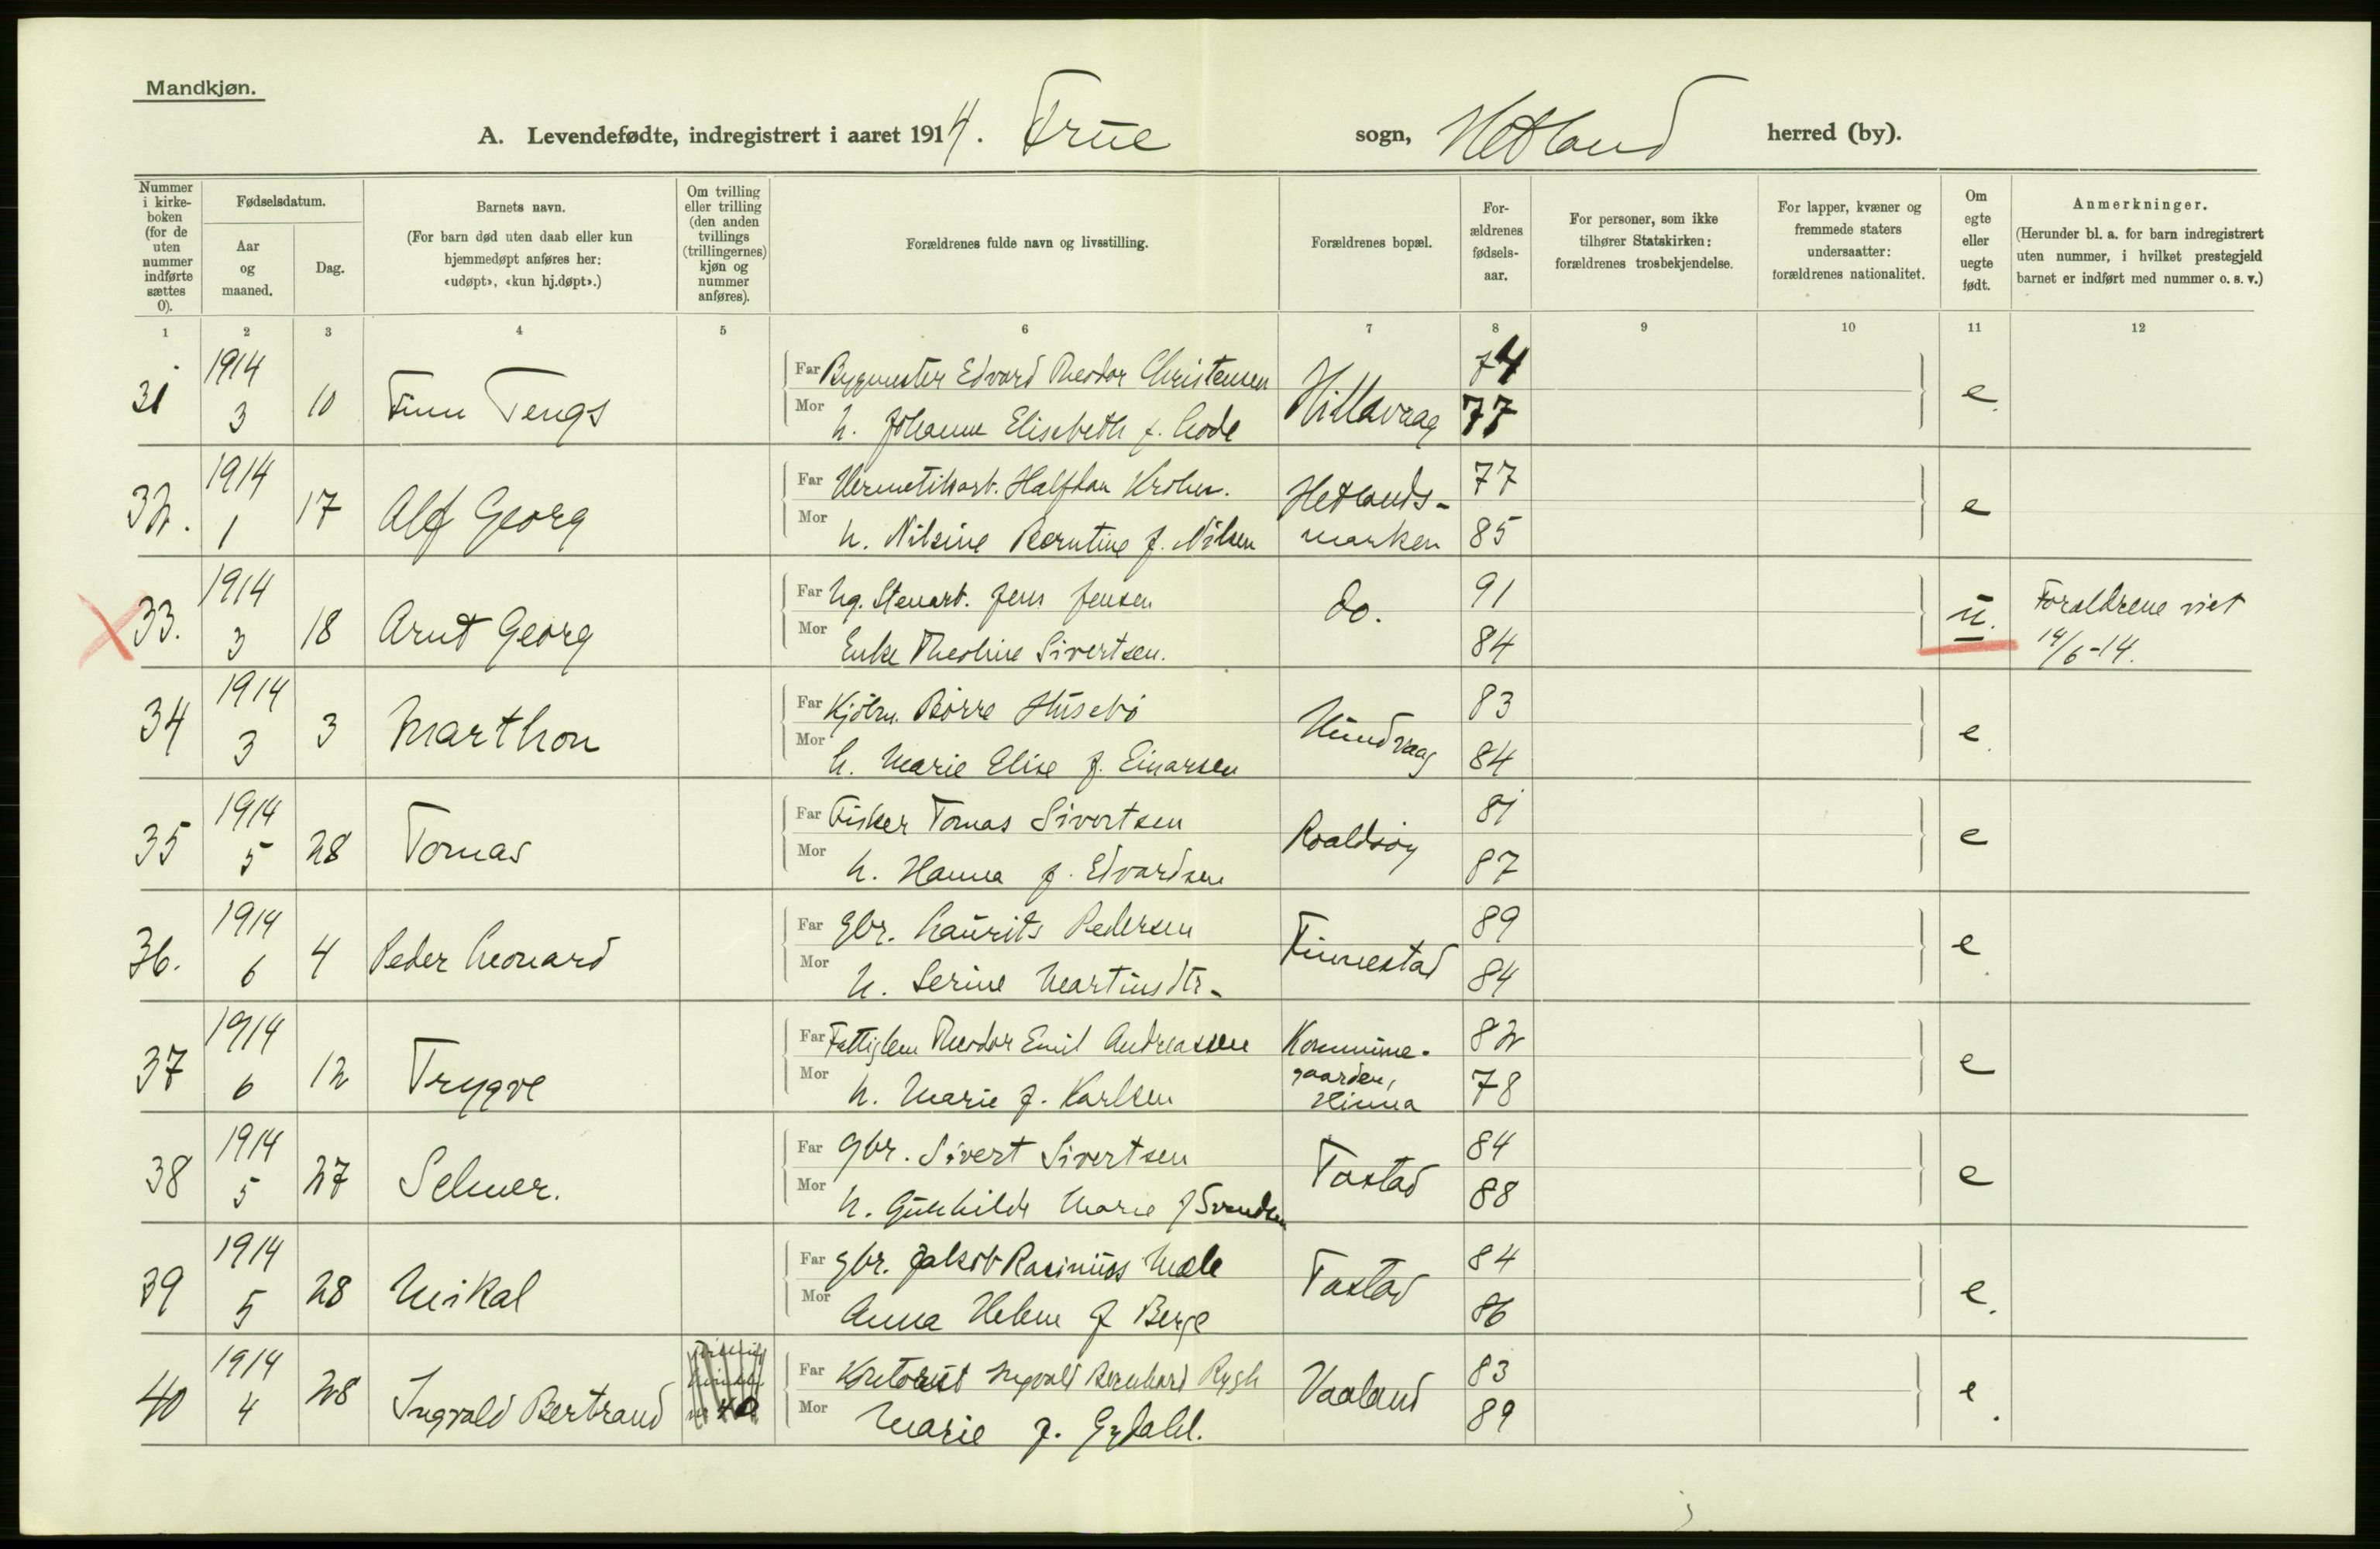 Mandkjøn.
A. Levendefødte, indregistrert i aaret 1914. Frue sogn, Hetland herred (by).
Nummer i kirkeboken (for de uten nummer indførte sættes 0).
Fødselsdatum.
Aar og maaned.
Dag.
Barnets navn.
(For barn død uten daab eller kun hjemmedøpt anføres her: «udøpt», «kun hj.døpt».)
Om tvilling eller trilling (den anden tvillings (trillingernes) kjøn og nummer anføres).
Forældrenes fulde navn og livsstilling.
Forældrenes bopæl.
Forældrenes fødselsaar.
For personer, som ikke tilhører Statskirken: forældrenes trosbekjendelse.
For lapper, kvæner og fremmede staters undersaatter: forældrenes nationalitet.
Om egte eller uegte født.
Anmerkninger.
(Herunder bl. a. for barn indregistrert uten nummer, i hvilket prestegjeld barnet er indført med nummer o. s. v.)
1 2 3 4 5 6 7 8 9 10 11 12
31 1914 3 10 Finn Tengs
Far Bygmester Edvard Theodor Christensen
Mor h. Johanne Elisabeth f. Gode
Hillevaag 74 77 e.
32. 1914 1 17 Alf Georg
Far Hermetikarb. Halfdan Krohn.
Mor h. Nilsine Berntine f. Nilsen
Hetlands-
marken 77 85 e
33. 1914 3 18 Arnt Georg
Far Ug. Stenarb. Jens Jensen
Mor Enke Theoline Sivertsen.
do. 91 84 u. Forældrene viet
14/6-14.
34 1914 3 3 Marthon
Far Kjölm. Börre Husebö
Mor h. Marie Elise f. Einarsen
Hundvaag 83 84 e.
35 1914 5 28 Tomas
Far Fisker Tomas Sivertsen
Mor h. Hanna f. Edvardsen
Roaldsöy 81 87 e
36. 1914 6 4 Peder Leonard
Far Gbr. Laurits Pedersen
Mor h. Serine Martinsdtr.
Finnestad 89 84 e.
37 1914 6 12 Trygve
Far Fattiglem Theodor Emil Andreassen
Mor h. Marie f. Karlsen
Kommune-
gaarden,
Hinna 82 78 e
38 1914 5 27 Selmer.
Far Gbr. Sivert Sivertsen
Mor h. Gunhilde Marie f Svendsen
Tastad 84 88 e
39 1914 5 28 Mikal
Far Gbr. Jakob Rasmus Mæle
Mor Anna Helene f Berge
Tastad 84 86 e.
40 1914 4 28 Ingvald Bertrand
Far Kontorist Ingvald Bernhard Rygh
Mor Marie f. Gydahl.
Vaaland 83 89 e.